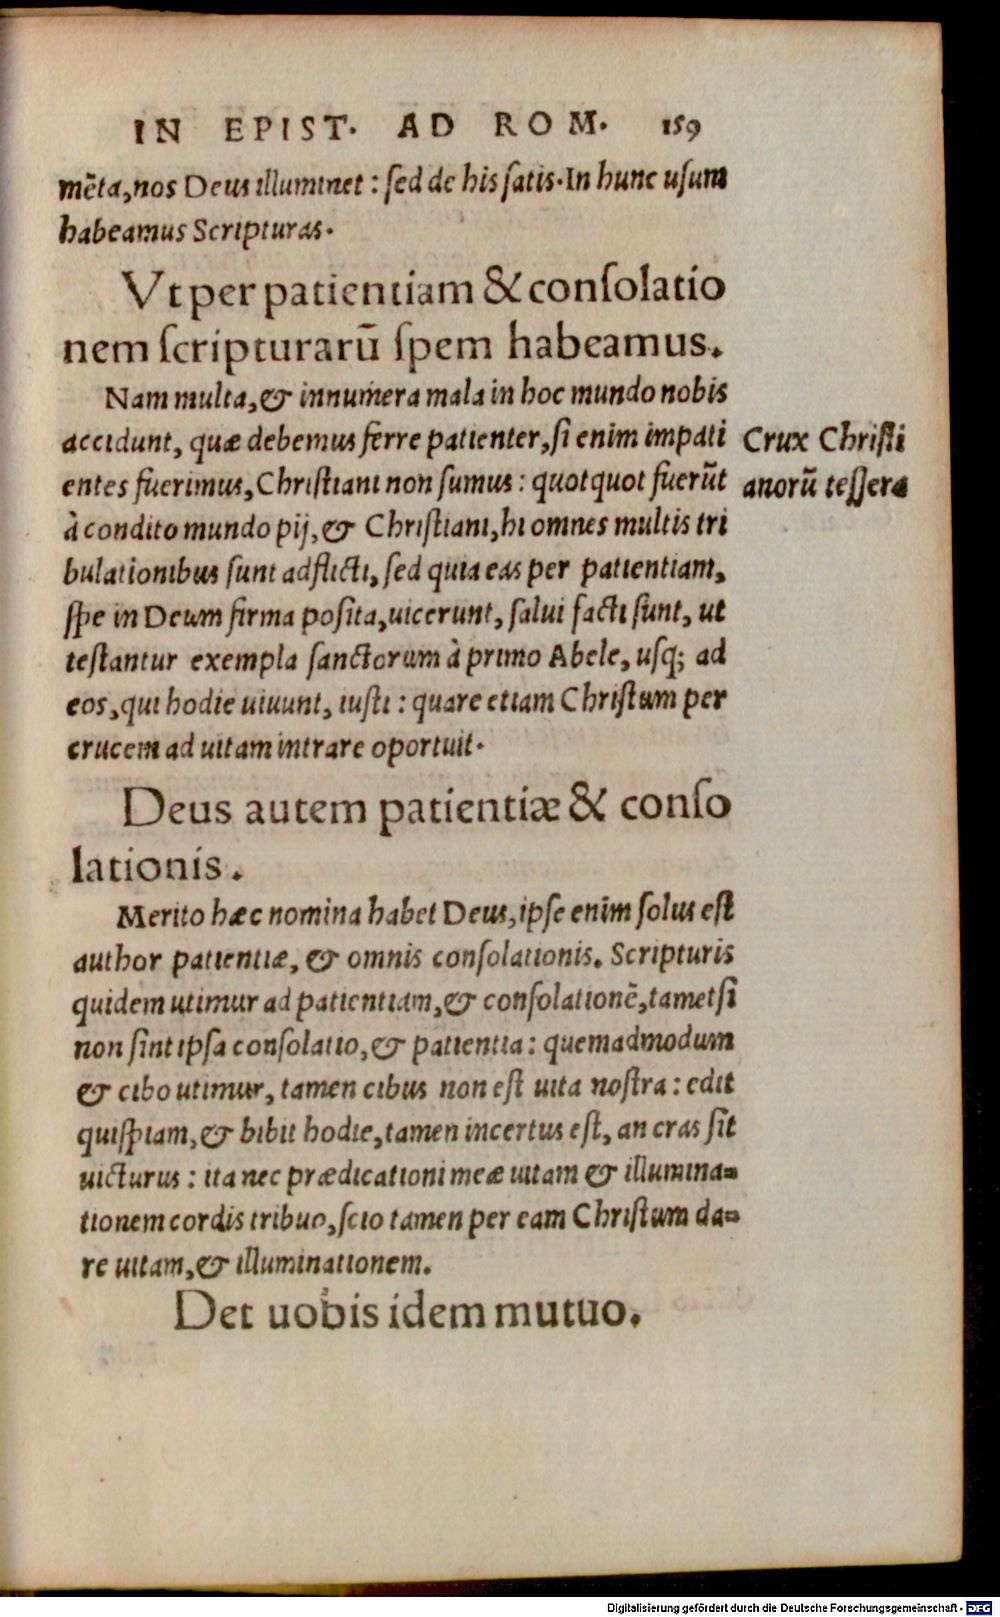 IN EPIST. AD ROM. 159
mēta, nos Deus illuminet : sed de his satis. In hunc usum
habeamus Scripturas.
Vt per patientiam & consolatio
nem scripturarū spem habeamus.
Nam multa, & innumera mala in hoc mundo nobis
accidunt, quæ debemus ferre patienter, si enim impati
entes fuerimus, Christiani non sumus : quotquot fuerūt
à condito mundo pij, & Christiani, hi omnes multis tri
bulationibus sunt adflicti, sed quia eas per patientiam,
spe in Deum firma posita, uicerunt, salui facti sunt, ut
testantur exempla sanctorum à primo Abele, usq; ad
eos, qui hodie uiuunt, iusti : quare etiam Christum per
crucem ad uitam intrare oportuit.
Crux Christi
anorū tessera
Deus autem patientiæ & conso
lationis.
Merito hæc nomina habet Deus, ipse enim solus est
author patientiæ, & omnis consolationis. Scripturis
quidem utimur ad patientiam, & consolationē, tametsi
non sint ipsa consolatio, & patientia : quemadmodum
& cibo utimur, tamen cibus non est uita nostra : edit
quispiam, & bibit hodie, tamen incertus est, an cras sit
uicturus : ita nec prædicationi meæ uitam & illumina=
tionem cordis tribuo, scio tamen per eam Christum da=
re uitam, & illuminationem.
Det uobis idem mutuo.
Digitalisierung gefördert durch die Deutsche Forschungsgemeinschaft - DFG